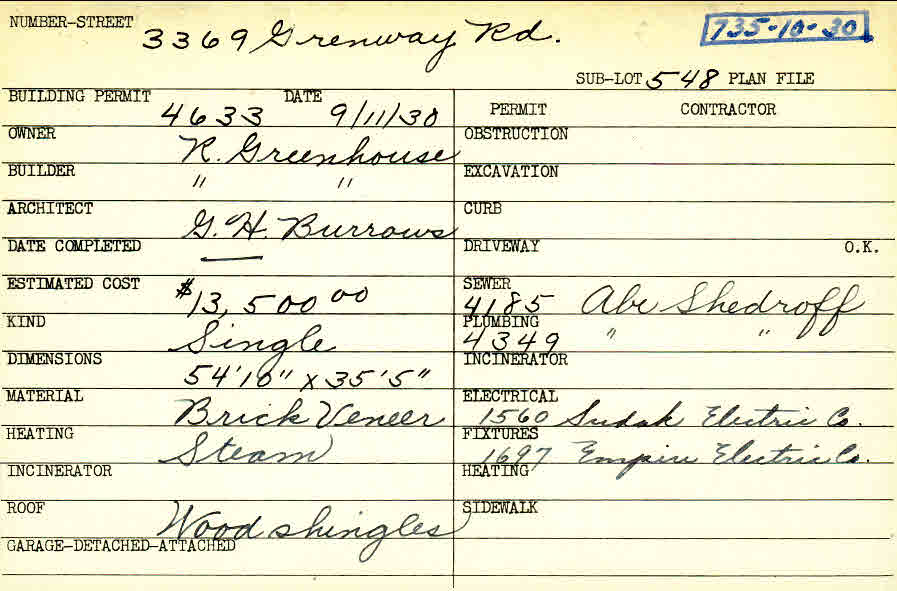 NUMBER-STREET 3369 Grenway Rd. 735-10-30
SUB-LOT 548 PLAN FILE
BUILDING PERMIT 4633 DATE 9/11/30 PERMIT CONTRACTOR
OWNER R. Greenhouse OBSTRUCTION
BUILDER " " EXCAVATION
ARCHITECT G. H. Burrows CURB
DATE COMPLETED — DRIVEWAY O.K.
ESTIMATED COST $13,500 00 SEWER 4185 Abe Shedroff
KIND Single PLUMBING 4349 " "
DIMENSIONS 54'10" x 35'5" INCINERATOR
MATERIAL Brick Veneer ELECTRICAL 1560 Sudak Electric Co.
HEATING Steam FIXTURES 1697 Empire Electric Co.
INCINERATOR HEATING
ROOF Wood shingles SIDEWALK
GARAGE-DETACHED-ATTACHED